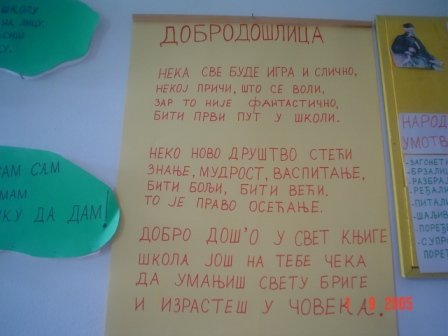 ШКОЛУ
НА ЛИЦУ.
ДОБРОДОШЛИЦА
НЕКА СВЕ БУДЕ ИГРА И СЛИЧНО,
НЕКОЈ ПРИЧИ, ШТО СЕ ВОЛИ,
ЗАР ТО НИЈЕ ФАНТАСТИЧНО,
БИТИ ПРВИ ПУТ У ШКОЛИ.
НЕКО НОВО ДРУШТВО СТЕЋИ
ЗНАЊЕ, МУДРОСТ, ВАСПИТАЊЕ,
БИТИ БОЉИ, БИТИ ВЕЋИ.
ТО ЈЕ ПРАВО ОСЕЋАЊЕ.
ДОБРО ДОШ'О У СВЕТ КЊИГЕ
ШКОЛА ЈОШ НА ТЕБЕ ЧЕКА
ДА УМАЊИШ СВЕТУ БРИГЕ
И ИЗРАСТЕШ У ЧОВЕКА.
САМ
ДА ДАМ!
НАРОД
УМОТВ
-ЗАГОНЕТ
-БРЗАЛИЦ
-РАЗБРАЈ
-РЕЂАЛИ
-ПИТАЛИ
-ШАЉИВ
-ПОРЕЂЕ
-СУПРО
ПОРЕТ
9 2005